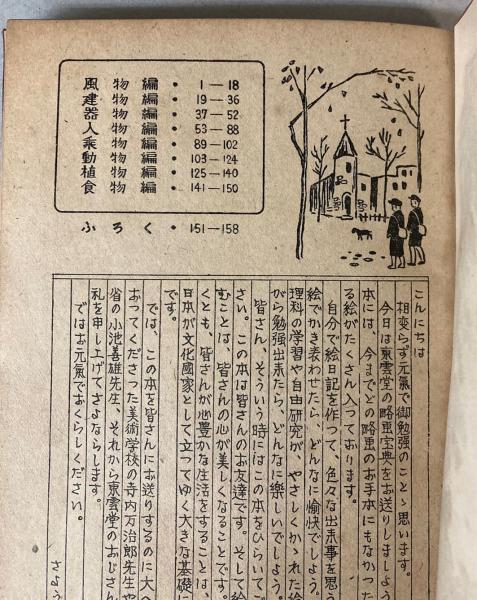 風物編・1—18
建物編・19—36
器物編・37—52
人物編・53—88
乘物編・89—102
動物編・103—124
植物編・125—140
食物編・141—150
ふろく・151—158
こんにちは
相変らず元氣で御勉強のことゝ思います。
今日は東雲堂の略画宝典をお送りしましよう
本には、今までどの略画のお手本にもなかつた
る絵がたくさん入つております。
自分で絵日記を作つて、色々な出来事を思う
絵でかき表わせたら、どんなに愉快でしよう。
理科の学習や自由研究が、やさしくかゝれた絵
がら勉強出来たら、どんなに樂しいでしよう。
皆さん、そういう時にはこの本をひらいてご
さい。この本は皆さんのお友達です。そして絵
むことは、皆さんの心が美しくなることです。
くとも、皆さんが心豊かな生活をすることは、
日本が文化國家として立つてゆく大きな基礎に
です。
では、この本を皆さんにお送りするのに大へ
おつてくださつた美術学校の寺内万治郎先生や
省の小池喜雄先生、それから東雲堂のおじさん
礼を申し上げてさよならします。
ではお元氣でおくらしください。
さよう